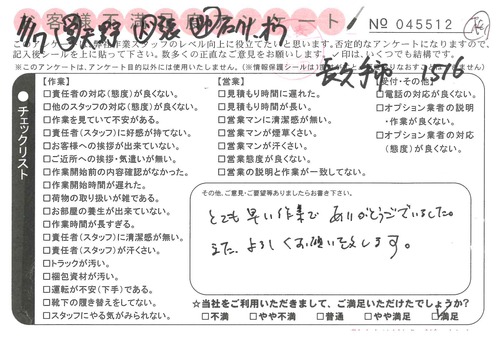 客様不満度アンケート
No 045512
このアンケートは、弊社作業スタッフのレベル向上に役立てたいと思います。否定的なアンケートになりますので、
記入後シールを上に貼って下さい。数多くの正直なご意見をお願いします。✓印は、いくつでも結構です。
※このアンケートは、アンケート目的以外には使用いたしません。
長久手市
1576
チェックリスト
【作業】
□責任者の対応(態度)が良くない。
□他のスタッフの対応(態度)が良くない。
□作業を見ていて不安がある。
□責任者(スタッフ)に好感が持てない。
□お客様への挨拶が出来ていない。
□ご近所への挨拶・気遣いが無い。
□作業開始前の内容確認がなかった。
□作業開始時間が遅れた。
□荷物の取り扱いが雑である。
□お部屋の養生が出来ていない。
□作業時間が長すぎる。
□責任者(スタッフ)に清潔感が無い。
□責任者(スタッフ)が汗くさい。
□トラックが汚い。
□梱包資材が汚い。
□運転が不安(下手)である。
□靴下の履き替えをしてない。
□スタッフにやる気がみられない。
【営業】
□見積もり時間に遅れた。
□見積もり時間が長い。
□営業マンに清潔感が無い。
□営業マンが煙草くさい。
□営業マンが汗くさい。
□営業態度が良くない。
□営業の説明と作業が一致してない。
【受付・その他】
□電話の対応が良くない。
□オプション業者の説明
・作業が良くない。
□オプション業者の対応
(態度)が良くない。
その他、ご意見・ご要望等ありましたらお書き下さい。
とても早い作業でありがとうございました。
また、よろしくお願いいたします。
☆当社をご利用いただきまして、ご満足いただけたでしょうか?
□不満 □やや不満 □普通 □やや満足 □満足